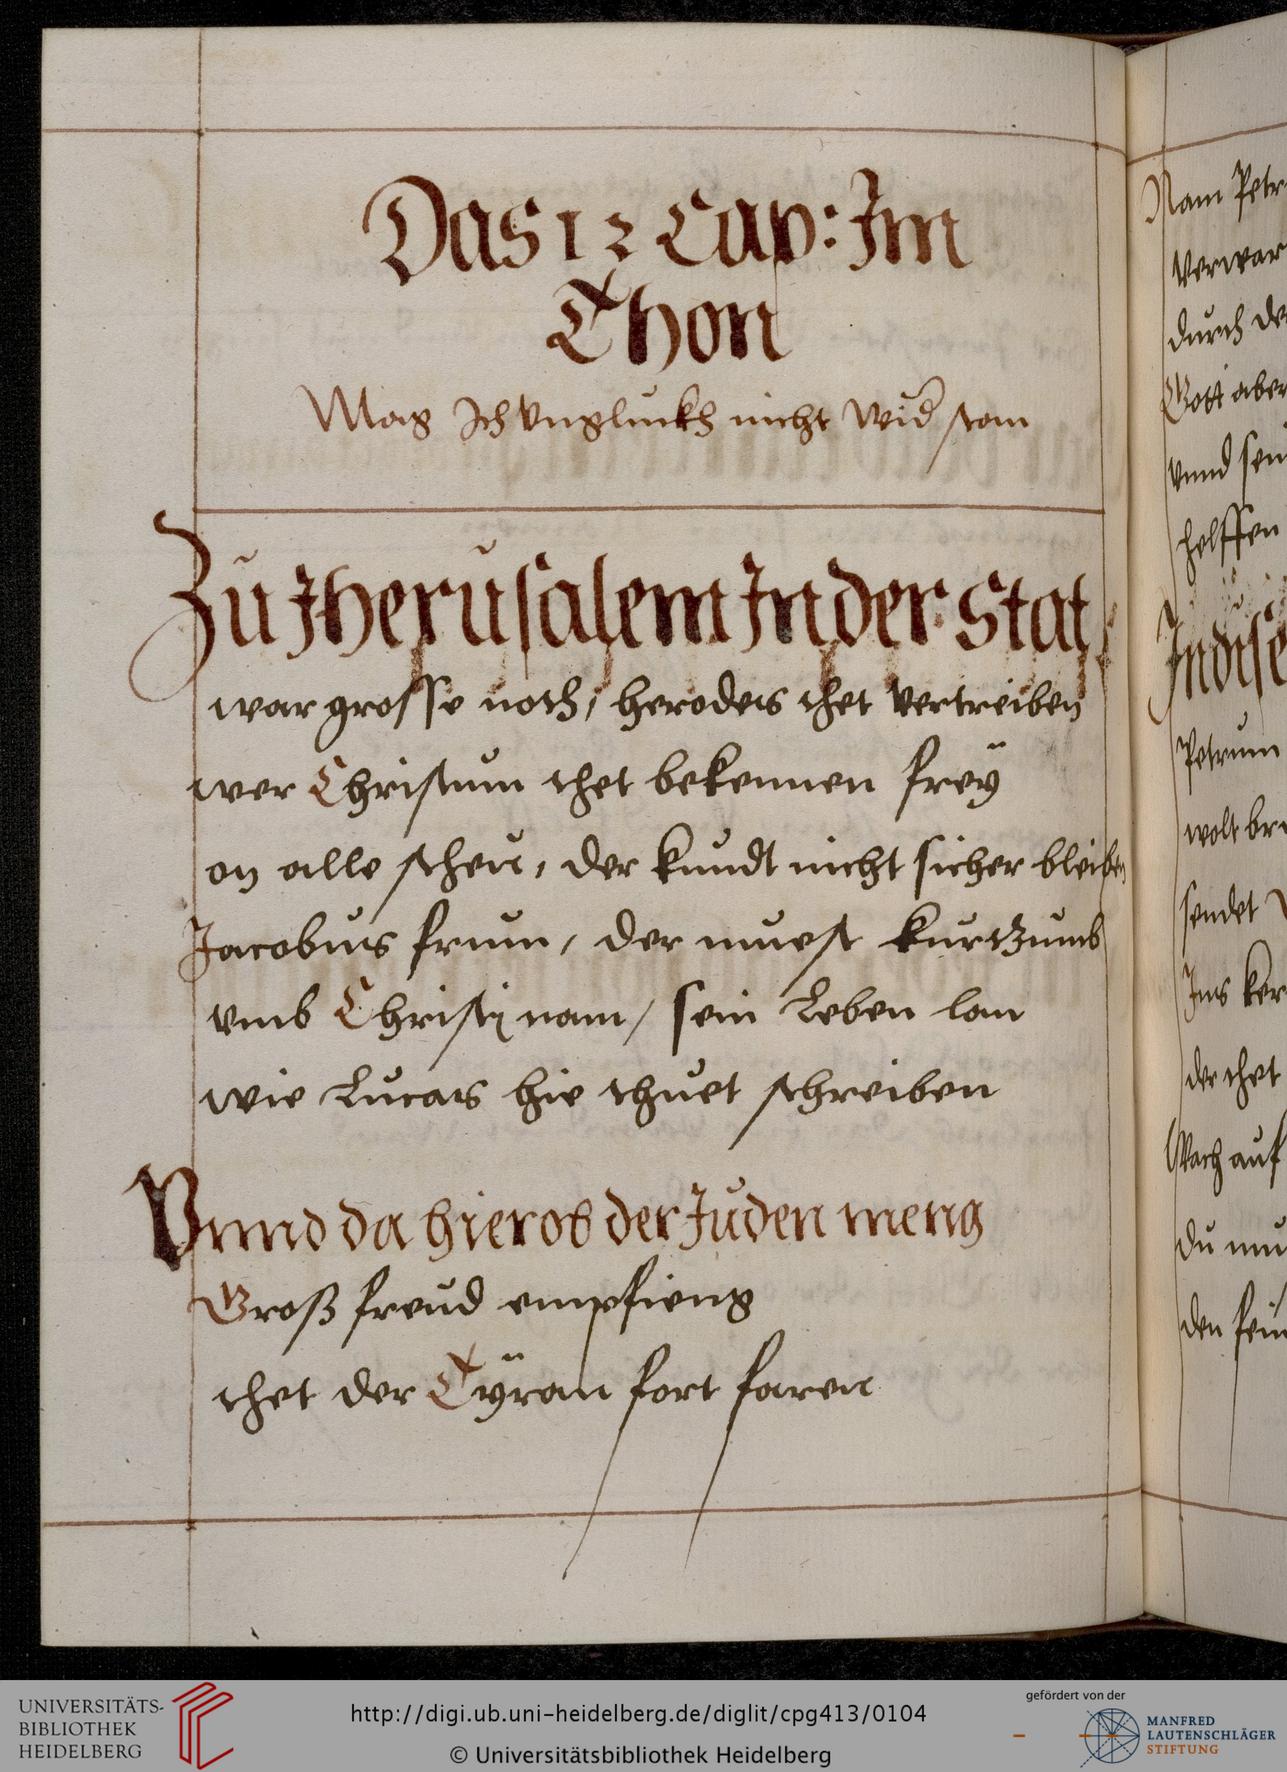 Das 12 Cap: Im
Thon
Mag Ich Vngluckh nicht wid stan
Zu Jherusalem In der Stat
war grosse noth, herodes thet Vertreiben
wer Christum thet bekennen freÿ
on alle scheu, der kundt nicht sicher bleiben
Jacobus frum, der muest kurtzumb
vmb Christi nam, sein Leben lan
wie Lucas hie thuet schreiben
Vnnd da hierob der Juden meng
Groß freud empfieng
thet der Tÿran fort faren
Nam Petr
verwar
durch de
Gott aber
vnnd sein
helffen
In dise
Petrum
wolt br
sendet
Ins ker
der thet
Wach auf
du mu
den fein
UNIVERSITÄTS-
BIBLIOTHEK
HEIDELBERG
http://digi.ub.uni-heidelberg.de/diglit/cpg413/0104
© Universitätsbibliothek Heidelberg
gefördert von der
MANFRED
LAUTENSCHLÄGER
STIFTUNG